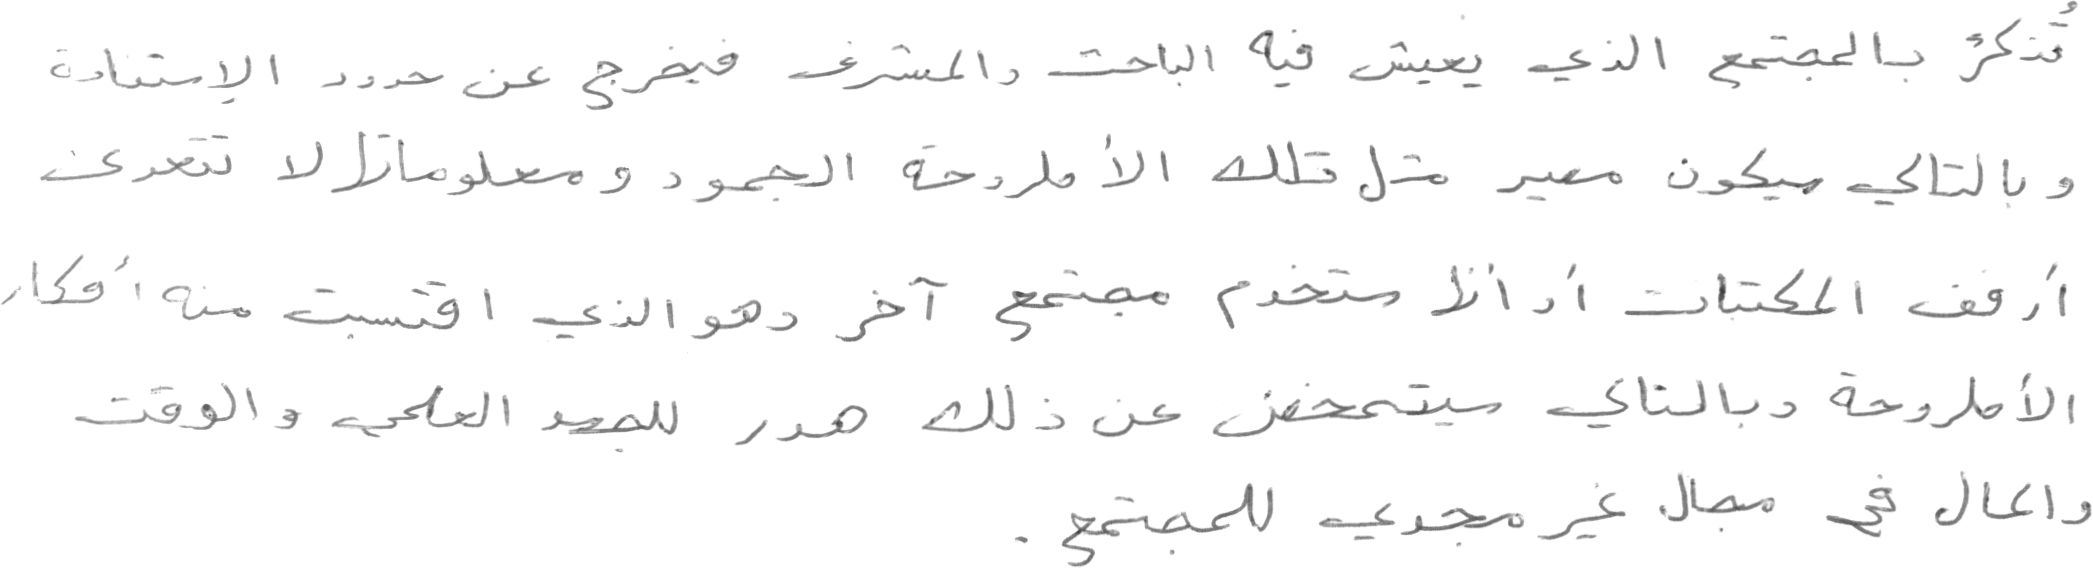 تُذكرُ بالمجتمع الذي يعيش فيه الباحث والمشرف فيخرج عن حدود الإستفادة
وبالتالي سيكون مصير مثل تلك الأطروحة الجمود ومعلوماتها لا تتعدى
أرفف المكتبات أو أنها ستخدم مجتمع آخر وهو الذي اقتبست منه أفكار
الأطروحة وبالتالي سيتمخض عن ذلك هدر للجهد العلمي والوقت
والمال في مجال غير مجدي للمجتمع .